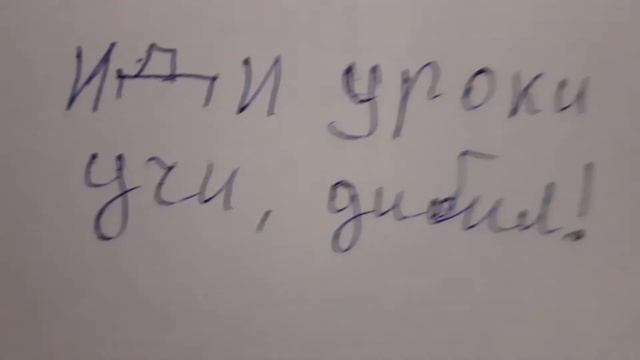 ИДИ уроки
учи, дибил!